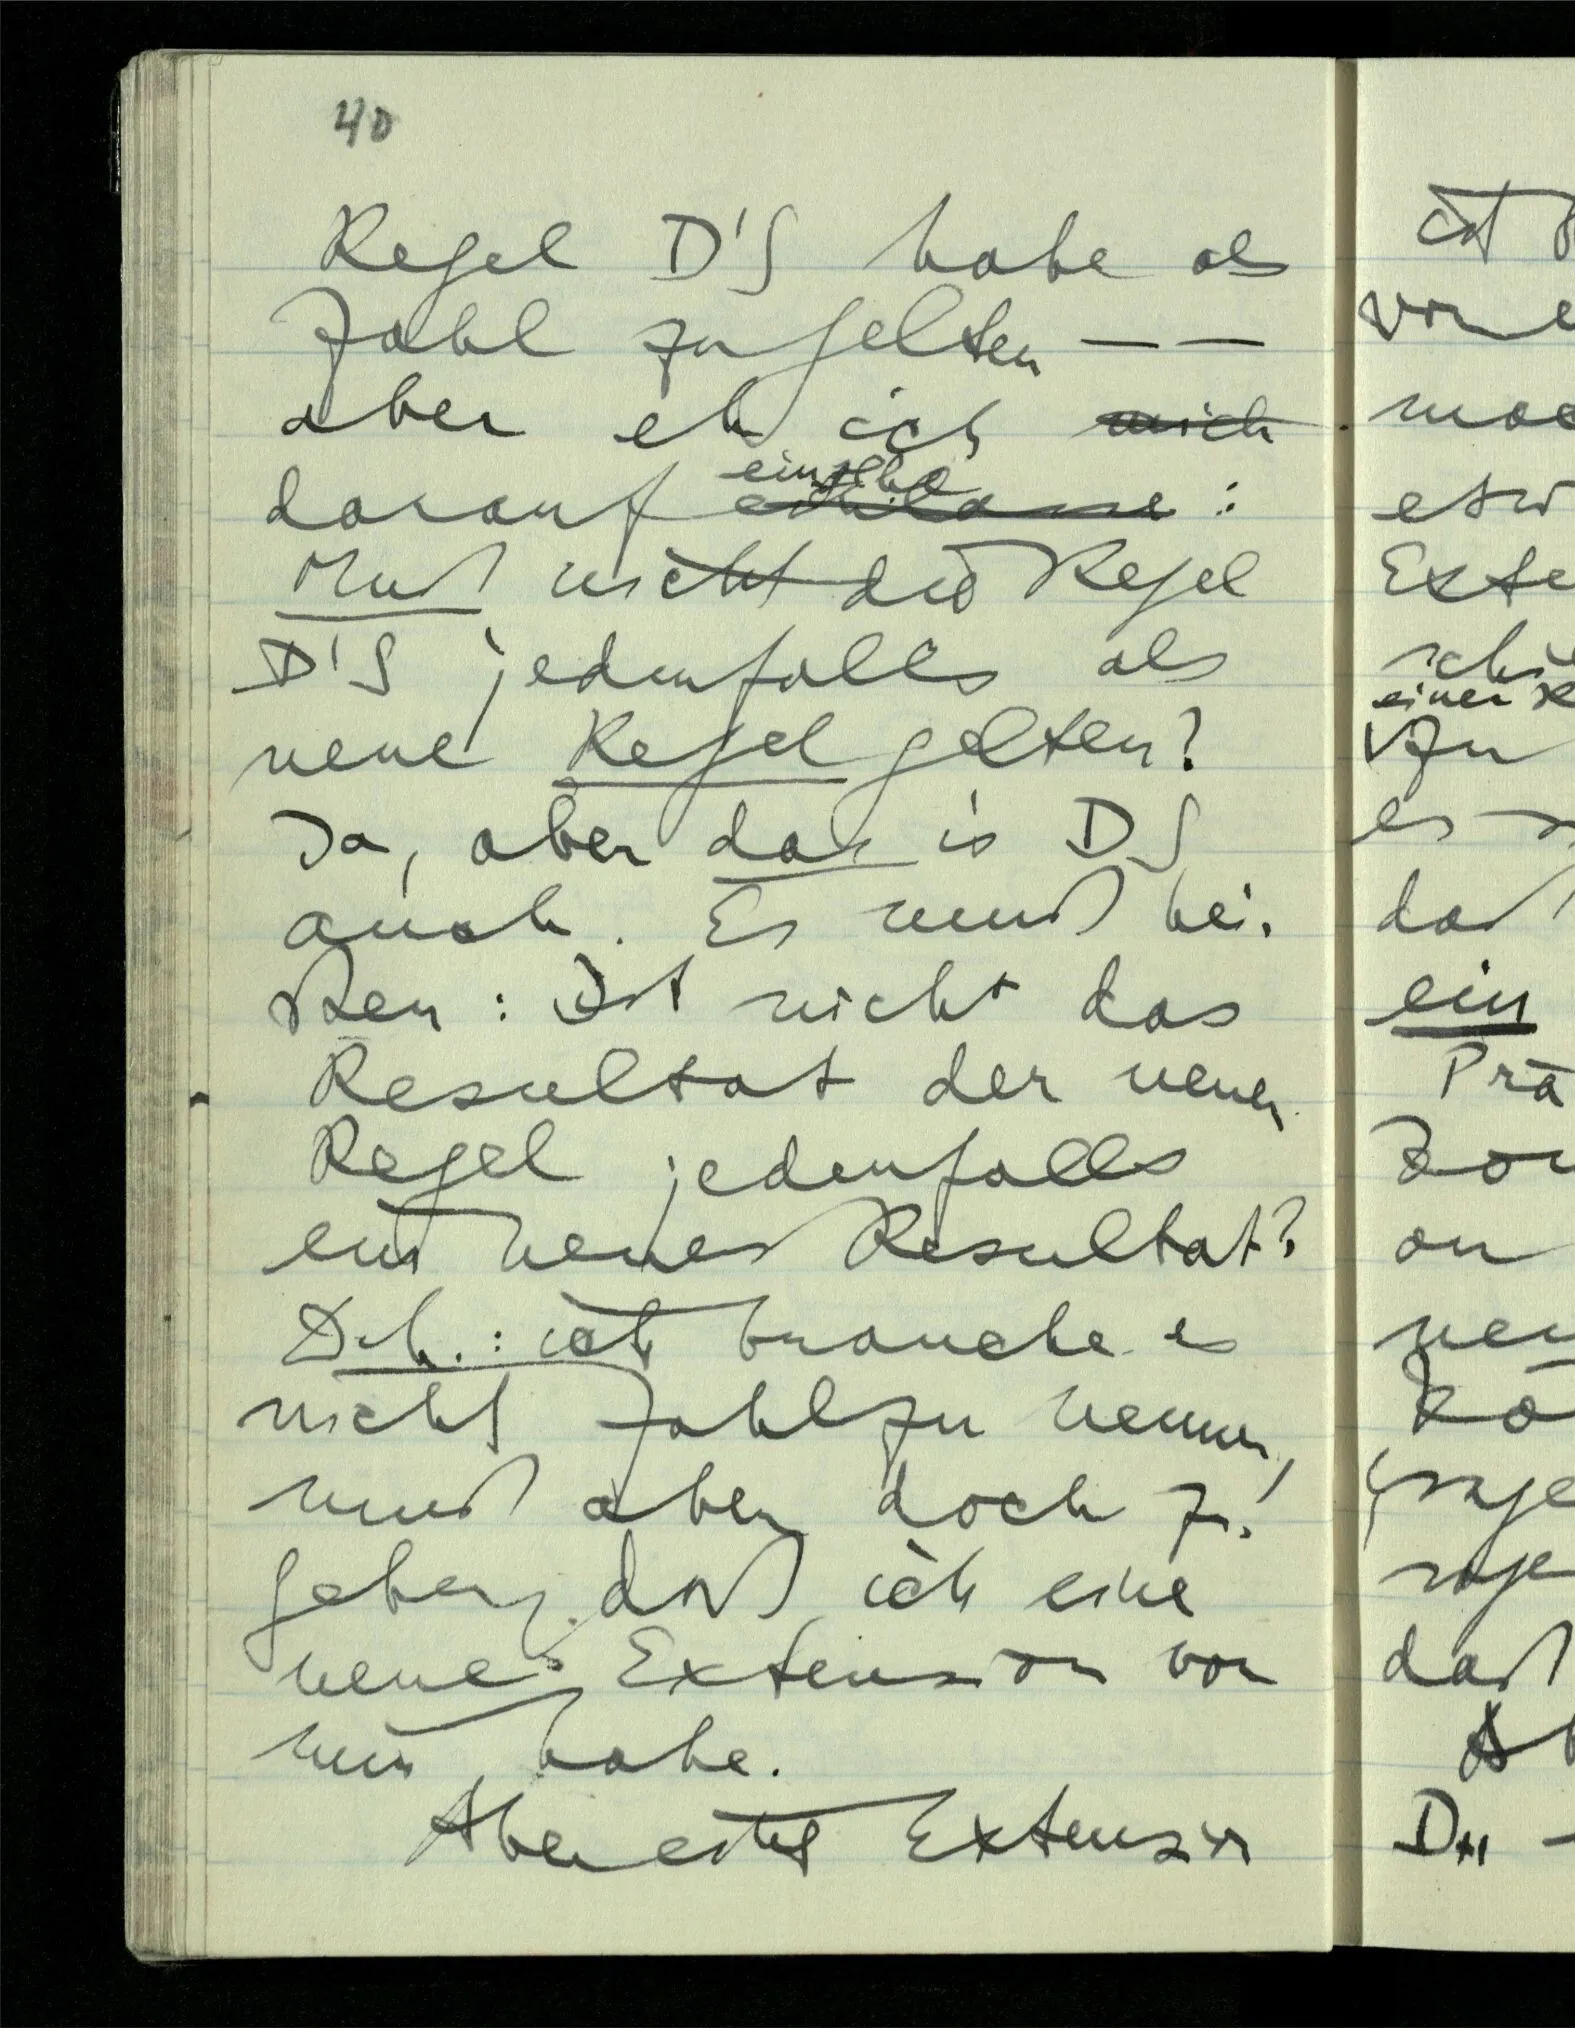 40
Regel D'S habe als
Zahl zu gelten — —
aber eh ich mich
darauf einlasse:
einlße
Muß nicht die Regel
D'S jedenfalls als
neue Regel gelten?
Ja, aber das is DS
auch. Es muß hei-
ßen: Ist nicht das
Resultat der neuen
Regel jedenfalls
ein neues Resultat?
D.h.: ich brauche es
nicht Zahl zu nennen,
muß aber doch zu-
geben, daß ich eine
neue Extension vor
mir habe.
Aber est Extension
ist
von e
mac
etw
Exte
schie
einer
zu
es
daß
ein
Prä
Zou
on
neu
Kö
frage
sage
daß
A
D